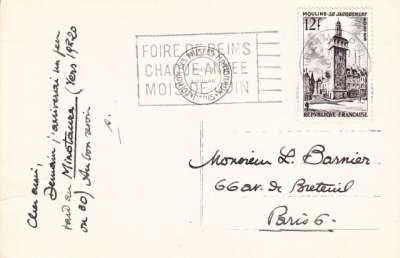 FOIRE DE REIMS
CHAQUE ANNÉE
MOIS DE JUIN
MOULINS-LE JACQUEMART
12F
REPUBLIQUE FRANÇAISE
Cher ami,
Demain j'arriverai un peu
tard au Minotaure (Vers 19h20
ou 30) Au bon revoir
Monsieur L. Barnier
66 av. de Breteuil
Paris 6.